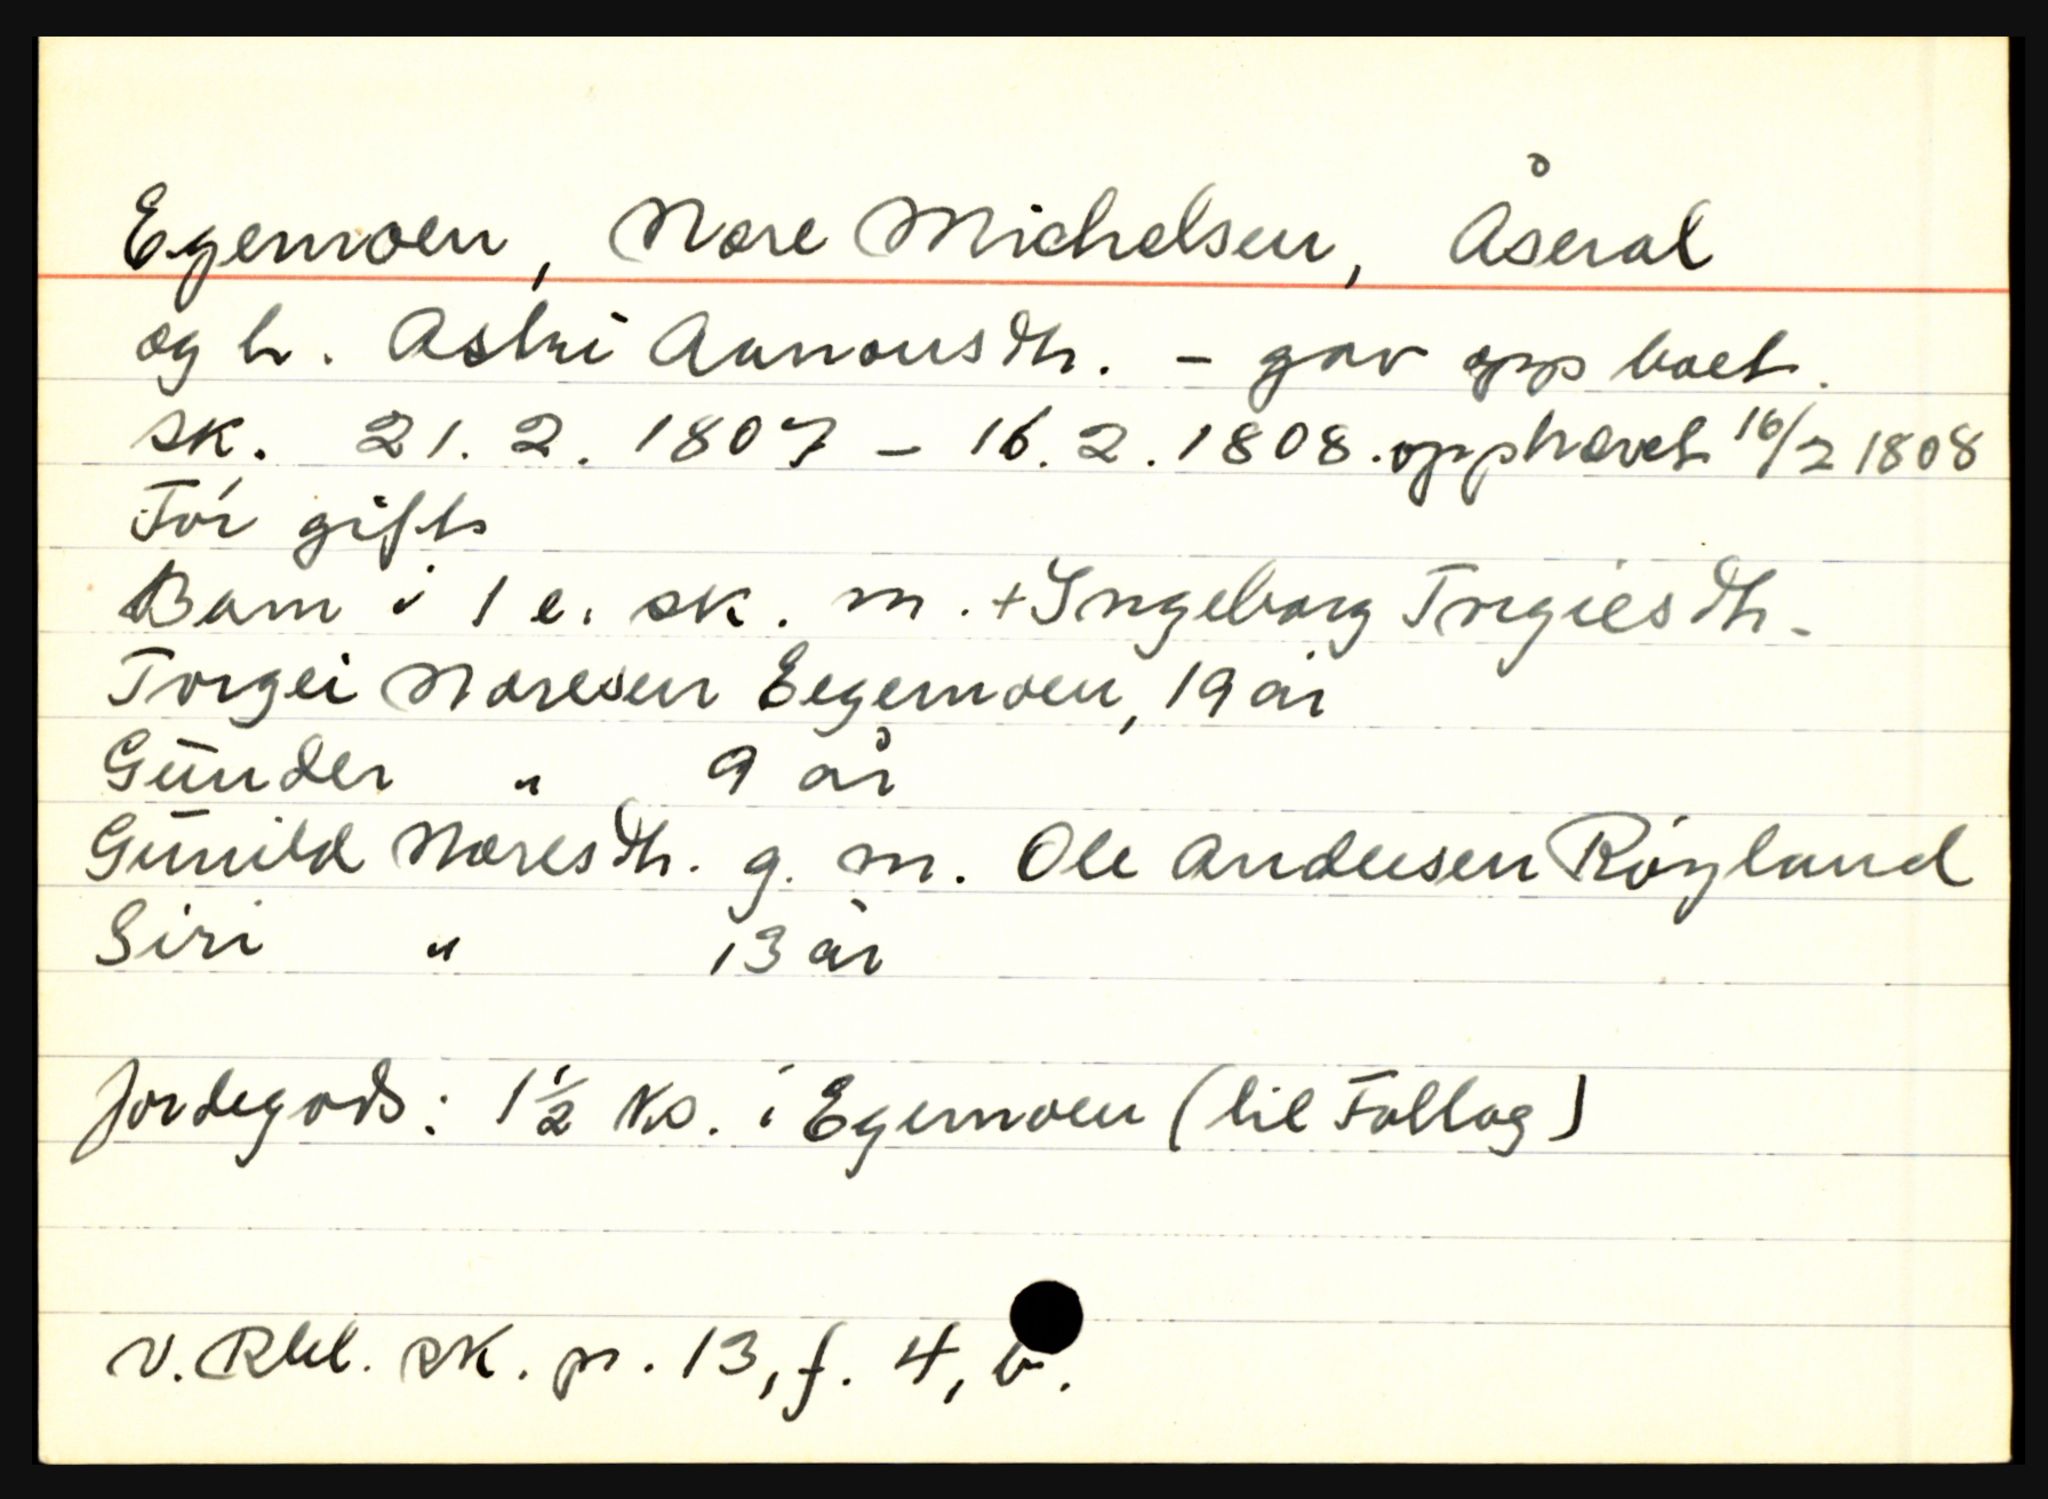 Egemoen, Nære Michelsen, Åseral
og h. Astri Aanonsdtr. - gav opp boet.
sk. 21. 2. 1807 - 16. 2. 1808. opphævet 16/2 1808
Før gift
Barn i 1 e. sk. m. + Ingeborg Torgiesdtr.
Torgei Næresen Eegemoen, 19 år
Gūnder " 9 år
Gūnild Næresdtr. g. m. Ole Andersen Röyland
Siri " 13 år
Jordegods: 1 1/2 ks. i Egemoen (til Follog)
V. Rbl. sk. pr. 13, f. 4, b.